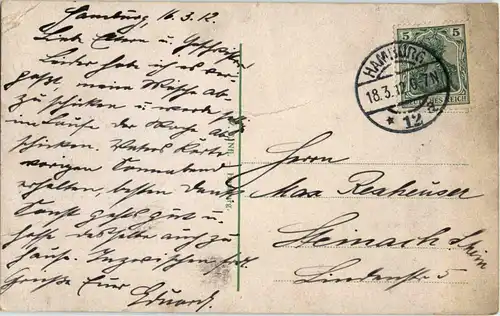 Hamburg, 16.3.12.
Liebe Eltern u. Geschwister
Leider hab ich es ver-
gessen, meine Wäsche ab
zu schicken u. werde sie
im Laufe der Woche ab-
schicken. Vaters Karte
vorigen Sonnabend
erhalten, besten Dank.
Sonst gehts gut u.
hoffe dasselbe auch zu
Hause. Inzwischen
Grüße Euer
Eduard.
5 5
DEUTSCHES REICH
HAMBURG
18.3.12. 6-7N
* 12
Herrn
Max
Steinach
Lindenstr. 5